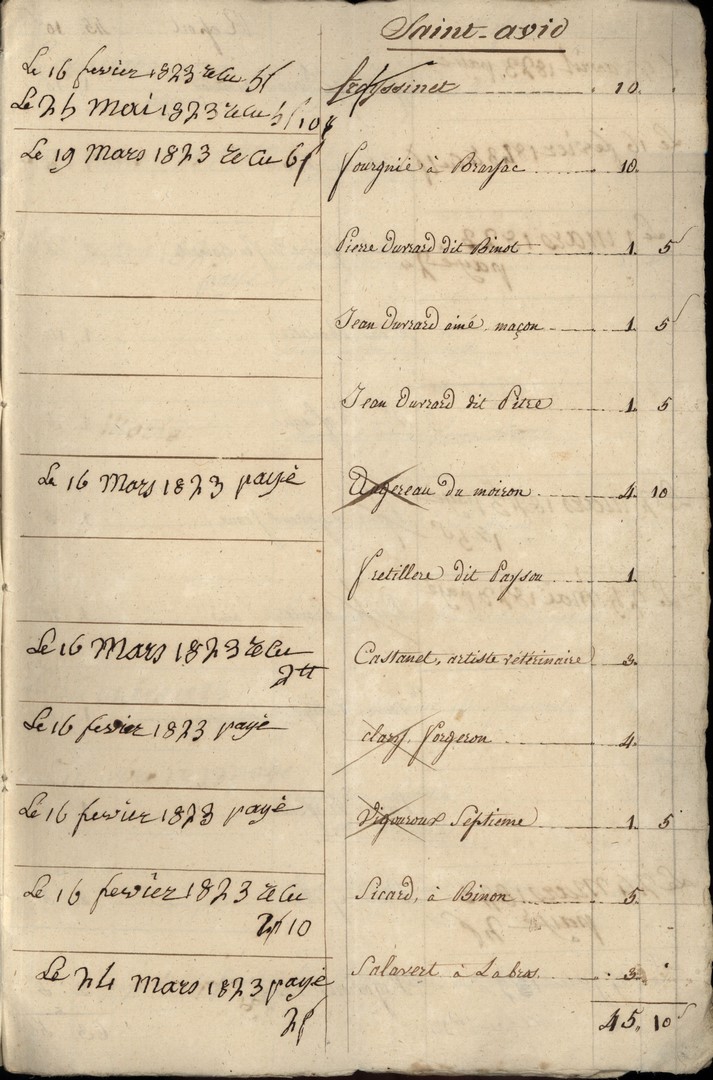 Saint-avid
Le 16 fevier 1823 recu 5f
Le 25 Mai 1823 recu 5f 10s
freyssinet 10.
Le 19 Mars 1823 recu 6f
fourgnié à Brassac 10.
Pierre Durrard dit Binot 1. 5s
Jean Durrard ainé maçon 1. 5s
Jean Durrard dit Petre 1. 5
Le 16 Mars 1823 payé
Augereau du moiron 4. 10
fretillere dit Payson 1.
Le 16 Mars 1823 recu
2tt
Castanet, artiste vétérinaire 3.
Le 16 fevier 1823 payé
forgeron 4.
Le 16 fevier 1823 payé
Vigouroux Septieme 1. 5
Le 16 fevier 1823 recu
2f 10
Sicard, à Binon 5.
Le 24 Mars 1823 payé
2f
Salavert à Labros 3.
45. 10s